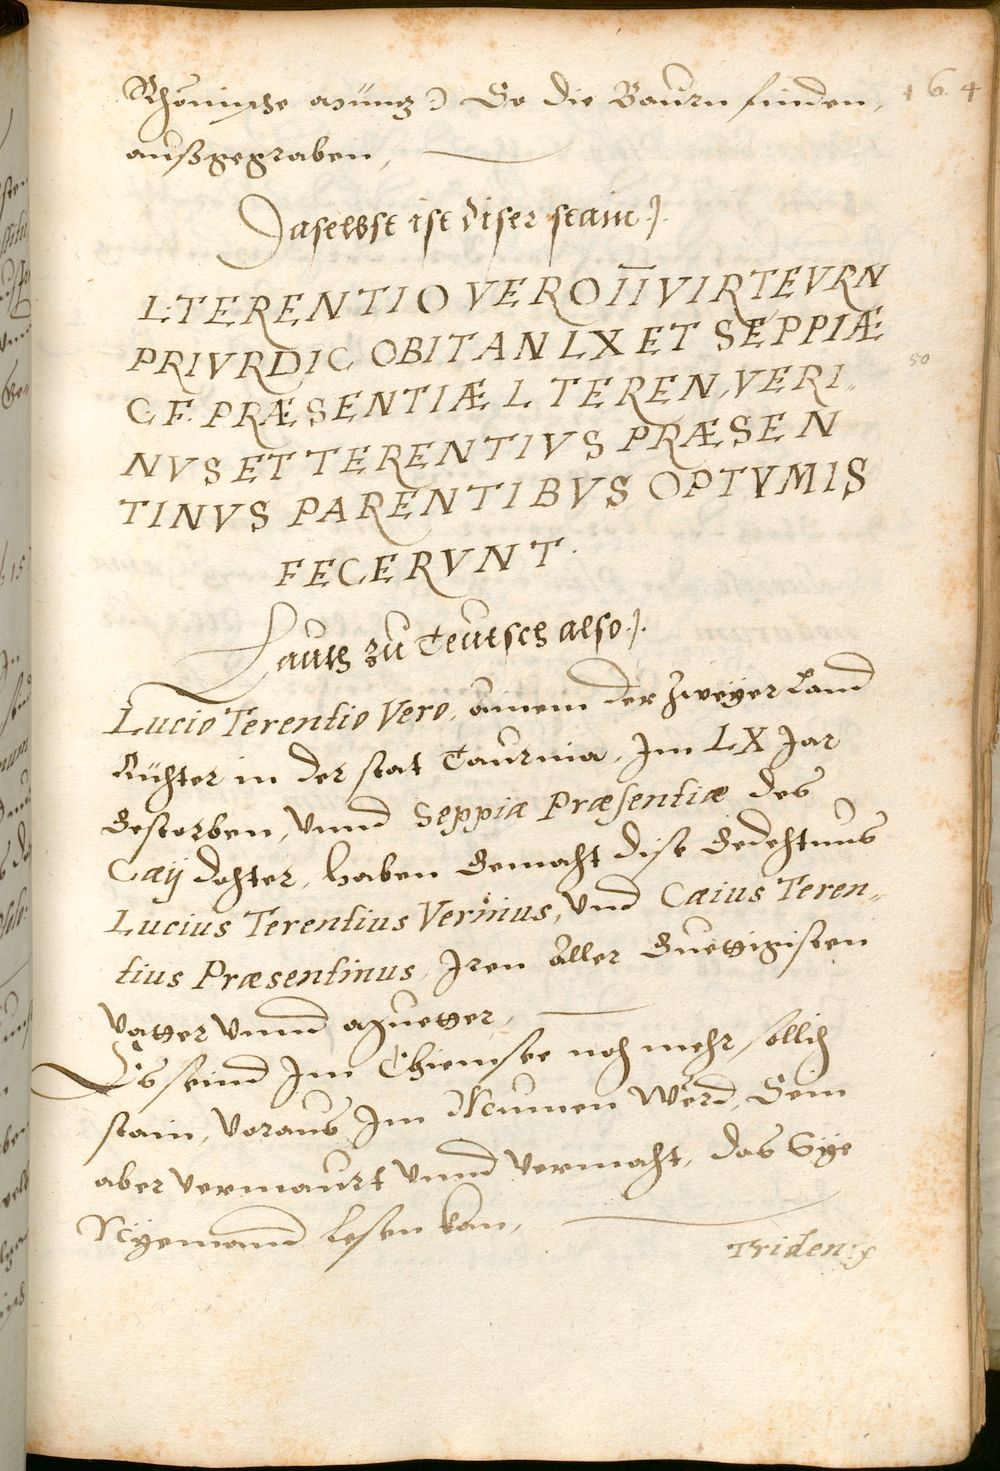 Rhömische Müntz) So die Baurn finden, 164
außgegraben,
Daselbst ist diser stain).
L:TERENTIO VERO II VIR TEVRN
PRIVRDIC OBIT AN LX ET SEPPIÆ
50
C F. PRÆSENTIÆ L TEREN, VERI„
NVS ET TERENTIVS PRÆSEN
TINVS PARENTIBVS OPTVMIS
FECERVNT.
Lauth zu Teutsch also.).
Lucio Terentio Vero, ainem der zweyer Land
Richter in der stat Taurnia, Im LX Jar
Gestorben, Vnnd Seppiæ Præsentiæ des
Caÿ dohter, haben Gemacht dise Gedehtnus
Lucius Terentius Verinus, Vnd Caius Teren„
tius Præsentinus, Iren Aller Guettigisten
Vatter Vnnd Muetter,
Es seind Im Chiemsee noch mehr sollich
stain, Voraus Im Werd, Sein
aber vermaurt Vnnd Vermacht, das Sÿe
Nÿemand Lesen kan,
Triden: